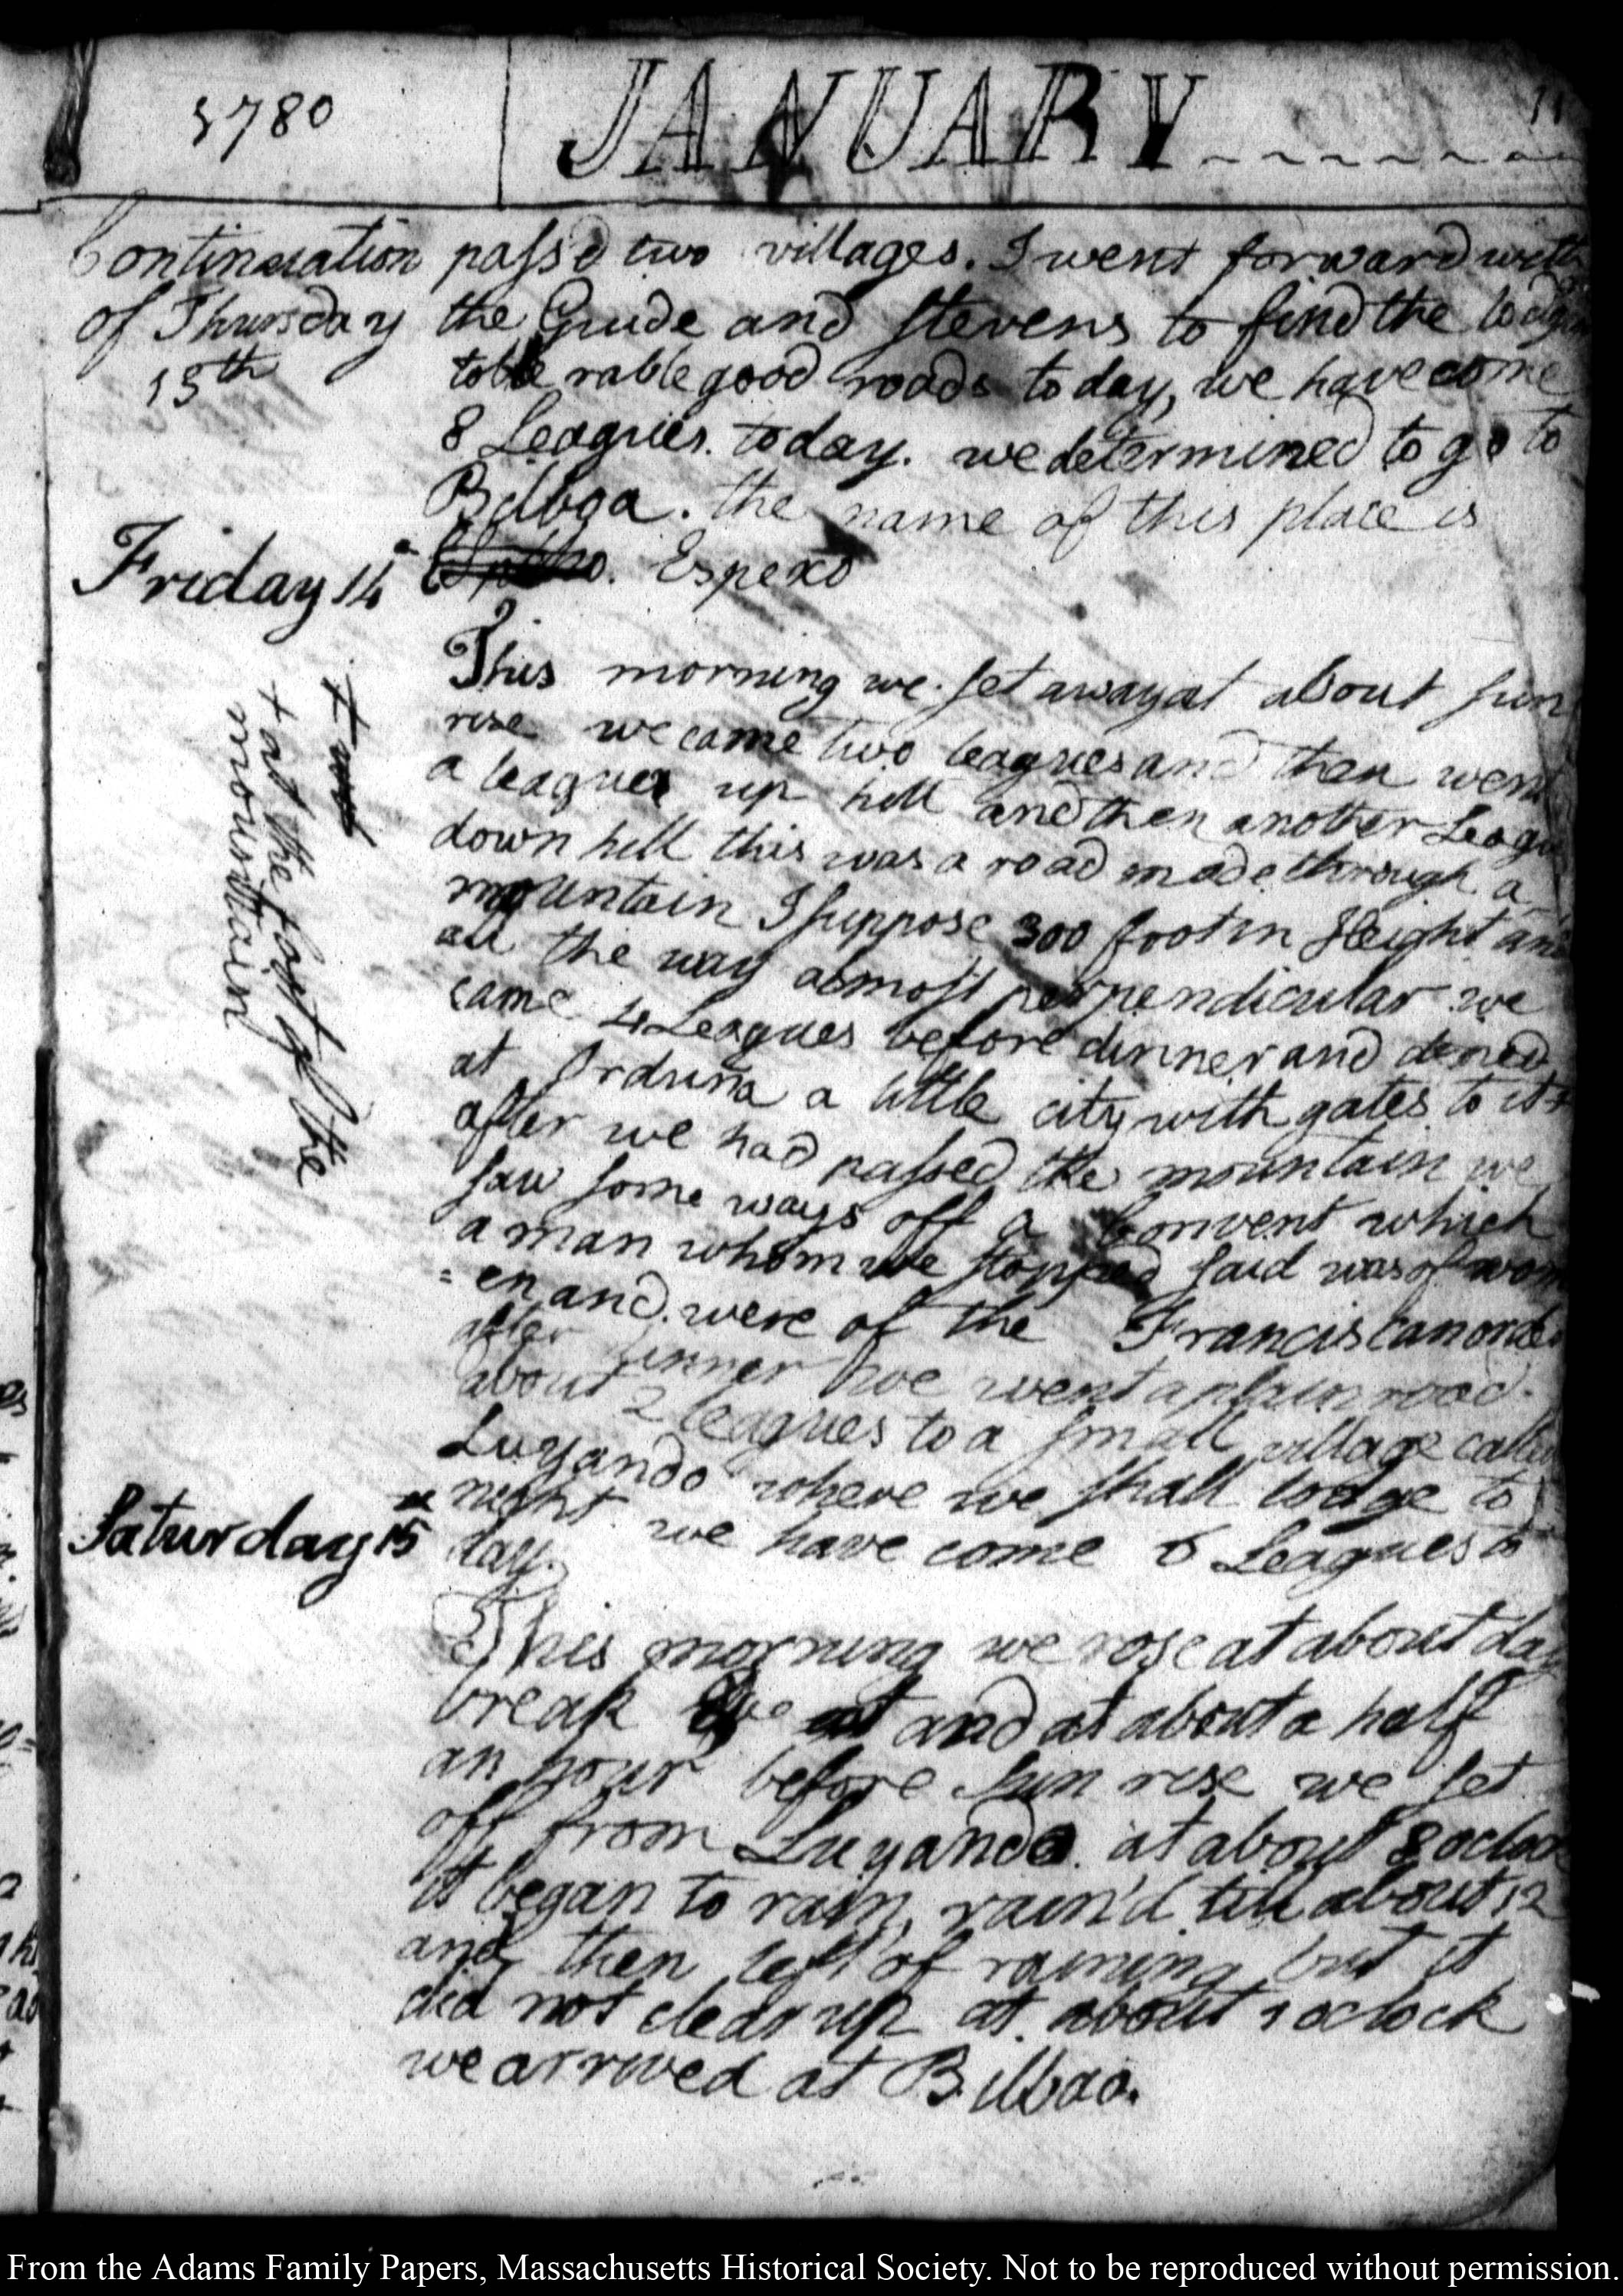 1780
JANUARY
11
Continuation
of Thursday
13th
passd two villages. I went forward with
the Guide and Stevens to find the lodgin
tolle rable good roads to day, we have come
8 Leagues. today. we determined to go to
Bilboa. the name of this place is
Espexo
Friday 14
+ at the foot of the
mountain
This morning we set away at about sun
rise we came two leagues and then went
a league up hill and then another Leagu
down hill this was a road made through a
mountain I suppose 300 foot in Height and
all the way almost perpendicular we
came 4 Leagues before dinner and dined
at Orduna a little city with gates to it +
after we had passed the mountain we
saw some ways off a Convent which
a man whom we stopped said was of wom
= en and were of the Franciscan orde
after dinner we went a plain road
about 2 leagues to a small village calle
Luyando where we shall lodge to
night we have come 6 Leagues to
day.
Saturday 15
This morning we rose at about day
break and at about a half
an hour before sun rise we set
off from Luyando. at about 8 oclock
it began to rain, rain'd till about 12
and then left of raining but it
did not clear up at about 1 oclock
we arrived at Bilbao.
From the Adams Family Papers, Massachusetts Historical Society. Not to be reproduced without permission.